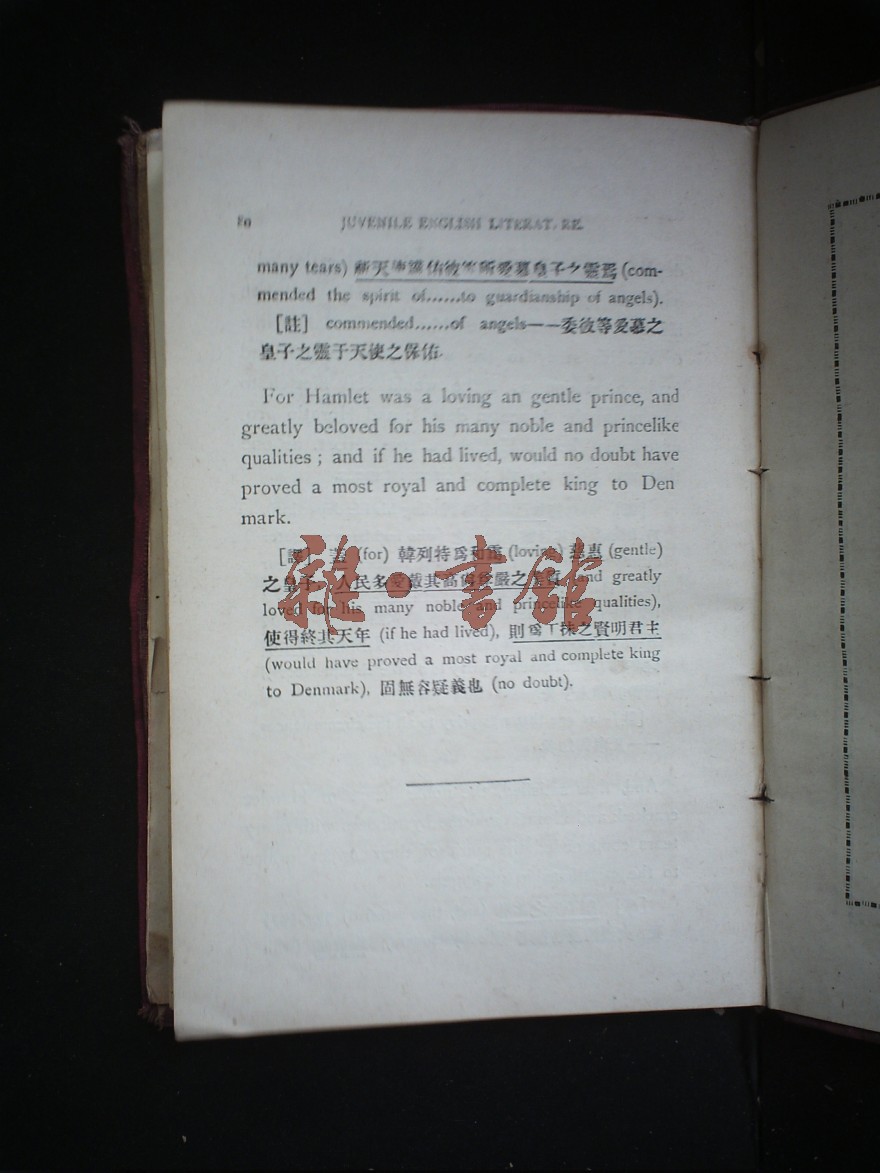 80 JUVENILE ENGLISH LITERAT. RE.
many tears) 祈天使護佑彼等所愛慕皇子之靈焉 (com-
mended the spirit of......to guardianship of angels).
[註] commended......of angels——委彼等愛慕之
皇子之靈于天使之保佑.
For Hamlet was a loving an gentle prince, and
greatly beloved for his many noble and princelike
qualities ; and if he had lived, would no doubt have
proved a most royal and complete king to Den
mark.
[譯] 蓋 (for) 韓列特爲和藹 (loving) 慈惠 (gentle)
之皇子, 人民多愛戴其高 嚴之 (and greatly
loved for his many noble and princelike qualities),
使得終其天年 (if he had lived), 則爲丁抹之賢明君主
(would have proved a most royal and complete king
to Denmark), 固無容疑義也 (no doubt).
雜·書館